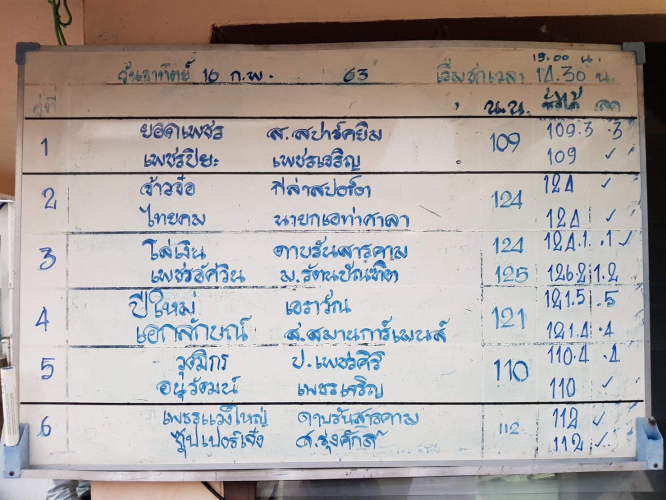 15.00 น.
วันอาทิตย์ 16 ก.พ. 63 เริ่มชกเวลา 14.30 น.
คู่ที่ น.น. ชั่งได้ ลด
1 ยอดเพชร ส.สปาร์คยิม 109 109.3 .3
เพชรปิยะ เพชรเจริญ 109 ✓
2 จ้าวจ๋อ กีล่าสปอร์ต 124 124 ✓
ไทยคม นายกเอท่าศาลา 124 ✓
3 ไล่เงิน ดาบรันสารคาม 124 124.1 .1 ✓
เพชรอัศวิน ม.รัตนบัณฑิต 125 126.2 1.2
4 ปีใหม่ เอราวัณ 121 121.5 .5
เอกลักษณ์ ส.สมานการ์เมนท์ 121.4 .4
5 วุฒิกร ป.เพชรศิริ 110 110.4 .4
อนุวัฒน์ เพชรเจริญ 110 ✓
6 เพชรแวงใหญ่ ดาบรันสารคาม 112 112 ✓
ซุปเปอร์เจ๋ง ศ.รุ่งศักดิ์ 112 ✓